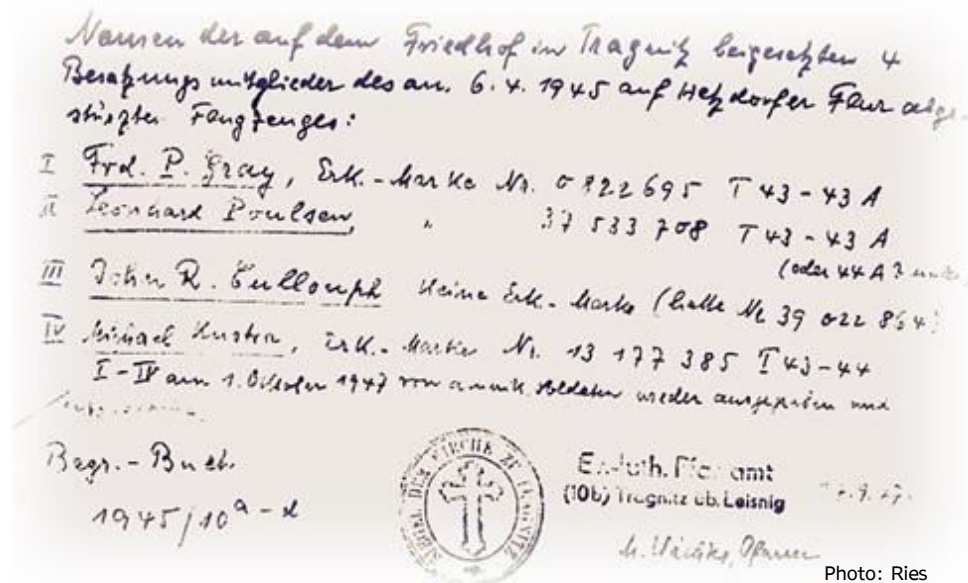 Namen der auf dem Friedhof in Tragnitz beigesetzten 4
Besatzungsmitglieder des am 6.4.1945 auf Hetzdorfer Flur abge-
stürzten Flugzeuges:
I Frd. P. Gray, Erk.-Marke Nr. 0 822695 T 43-43 A
II Leonhard Poulsen, " 37 533 708 T 43-43 A
(oder 44 A?
III John R. Cullouph keine Erk.-Marke (hatte Nr 39 022 864?
IV Michael Kustra, Erk.-Marke Nr. 13 177 385 T 43-44
I-IV am 1. Oktober 1947 von amerik. Soldaten wieder ausgegraben und
Begr.-Buch
1945/10 a-d
SIEGEL DER KIRCHE ZU TRAGNITZ
Ev.-luth. Pfarramt
(10b) Tragnitz üb. Leisnig
Pfarrer
Photo: Ries